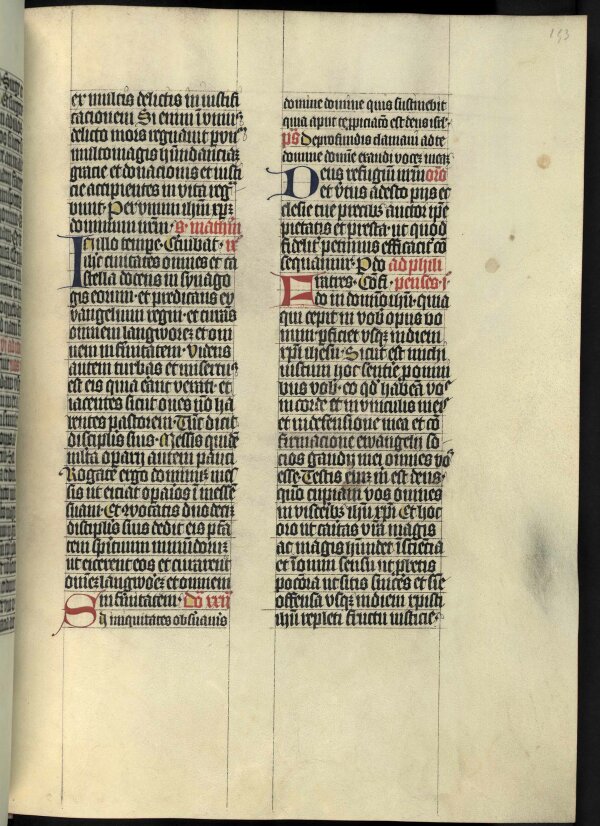 153
ex multis delictis in iustifi
cationem Si enim i vniꝰ
delicto mors regnauit p vnū
multo magis hūndanciā
gracie et donacionis et iusti
cie accipientes in vita reg
bunt · Per vnum ihm xpm
dominum nrm · s. mathm
In illo tempe · Cſuibat · ix
ihc ciuitates omnes et ca
stella docens in synago
gis eorum · et predicans ew
vangelium regni · et curās
omnem langworeꝫ et om
nem infirmitatem · Videns
autem turbas et misertus
est eis quia erant vexati · et
iacentes sicut oues nō ha
bentes pastorem · Tūc dicit
discipłis suis · Messis quidē
multa oparij autem pauci
Rogate ergo dominū mes
sis ut eiciat opaios i messē
suam · Et vocatis duodeci
discipłis suis dedit eis ptā
tem spirituum inmundorū
ut eicerent eos et curarent
omnē langworē et omnem
infirmitatem · Do xxii
Si iniquitates obsuauis
domine domine quis sustinebit
quia aput te ppiciacio est deus isrl ·
ps De profundis clamaui ad te
domine domine exaudi vocē meā
Deus refugiū nrm oro
et vtus adesto pijs ec
clesie tue precibꝰ auctor ipē
pietatis et presta · ut quod
fidelit petimus efficacit cō
sequamur · P do ad phili
Fratres · Cōfi · penses · i
do in domino ihu · quia
qui cepit in vob opus bo
num pficiet vsqꝫ in diem
xpi ihesu · Sicut est michi
iustum hoc sentire p omni
bus vob · eo qd habeā vos
in corde et in vinculis meis
et in defensione mea et cō
firmacione ewangelij so
cios gaudij mei omnes vos
esse · Testis enim m est deus ·
quō cupiam vos omnes
in viscerib ihu xpi · Et hoc
oro ut caritas vrā magis
ac magis hūndet i sciētia
et i omni sensu ut pbetis
pociora ut sitis sinceres et sine
offensa vsqꝫ in diem xpisti
ihu repleti fructu iusticie ·